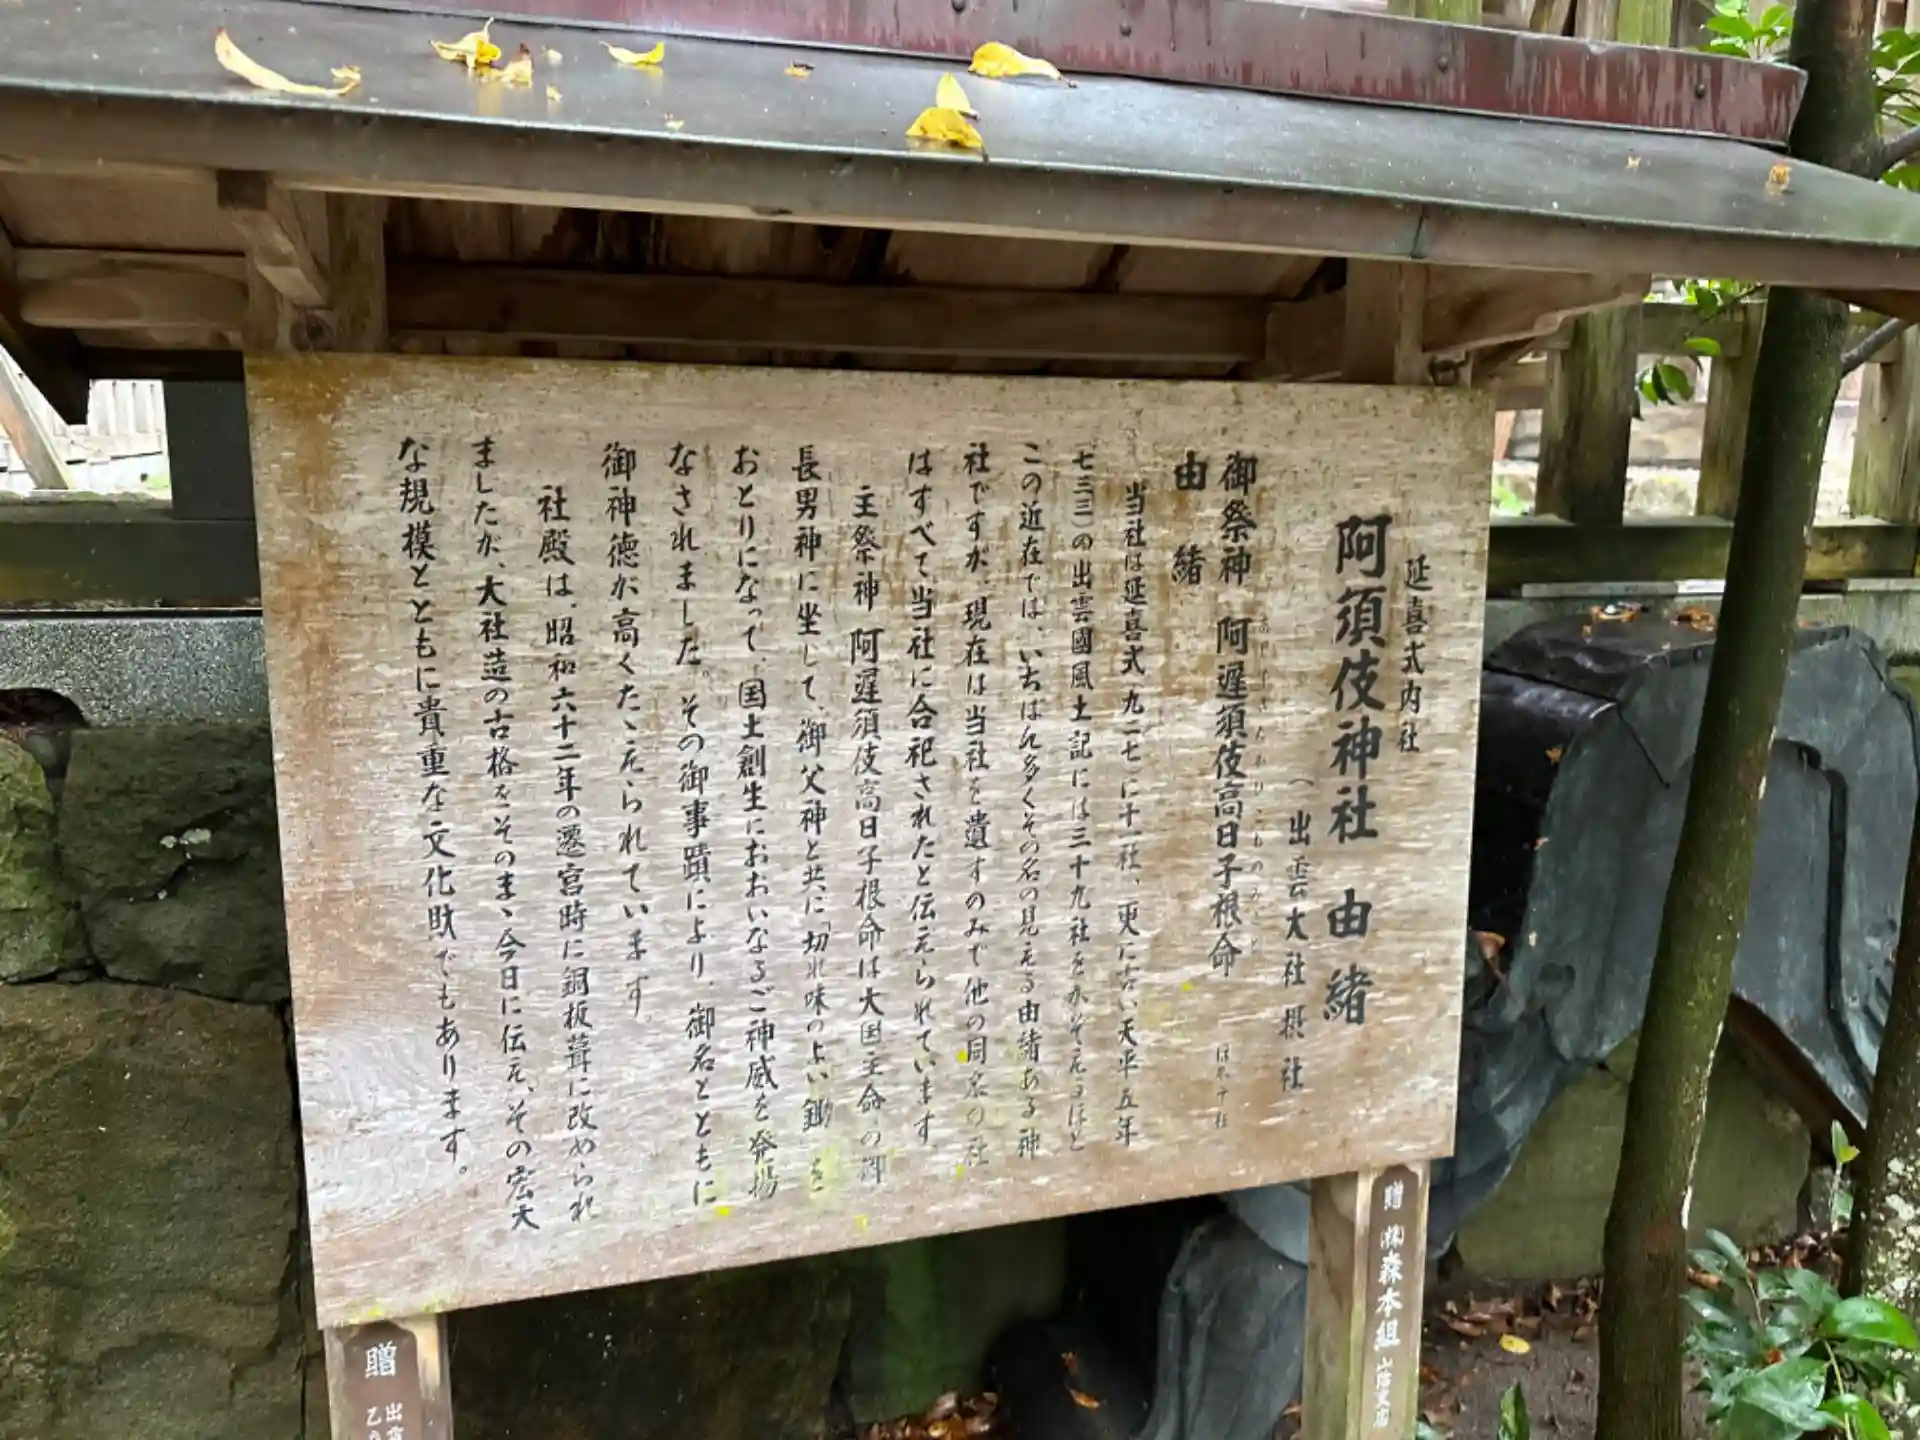 延喜式内社
阿須伎神社 由緒
(出雲大社摂社
御祭神 阿遅須伎高日子根命 ほか十社
あじすきたかひこねのみこと
由緒
当社は延喜式九二七に十一社、更に古い天平五年
(七三三)の出雲國風土記には三十九社をかぞえるほど
この近在では、いちばん多くその名の見える由緒ある神
社ですが、現在は当社を遺すのみで他の同名の社
はすべて当社に合祀されたと伝えられています
主祭神 阿遅須伎高日子根命は大国主命の御
長男神に坐して、御父神と共に「切れ味のよい鋤 を
おとりになって、国土創生におおいなるご神威を発揚
なされました。その御事蹟により、御名とともに
御神徳が高くたゝえられています。
社殿は、昭和六十二年の遷宮時に銅板葺に改められ
ましたが、大社造の古格をそのまゝ今日に伝え、その宏大
な規模とともに貴重な文化財でもあります。
贈 ㈱森本組 山陰支店
贈 出
乙